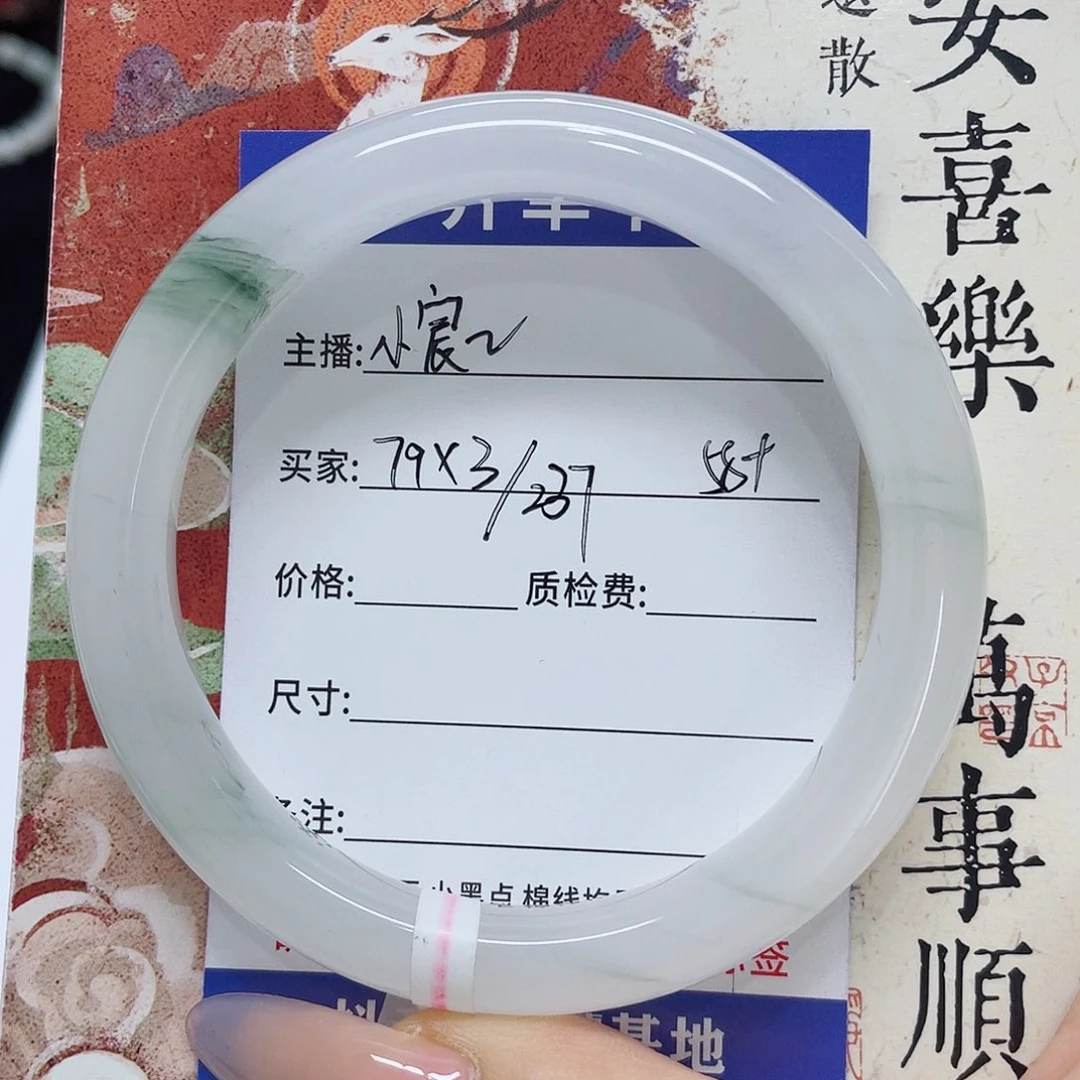 散
安喜樂
萬事順
主播:小宸
买家:79X3/237 58+
价格: 质检费:
尺寸:
备注:
小黑点棉线
签
基地